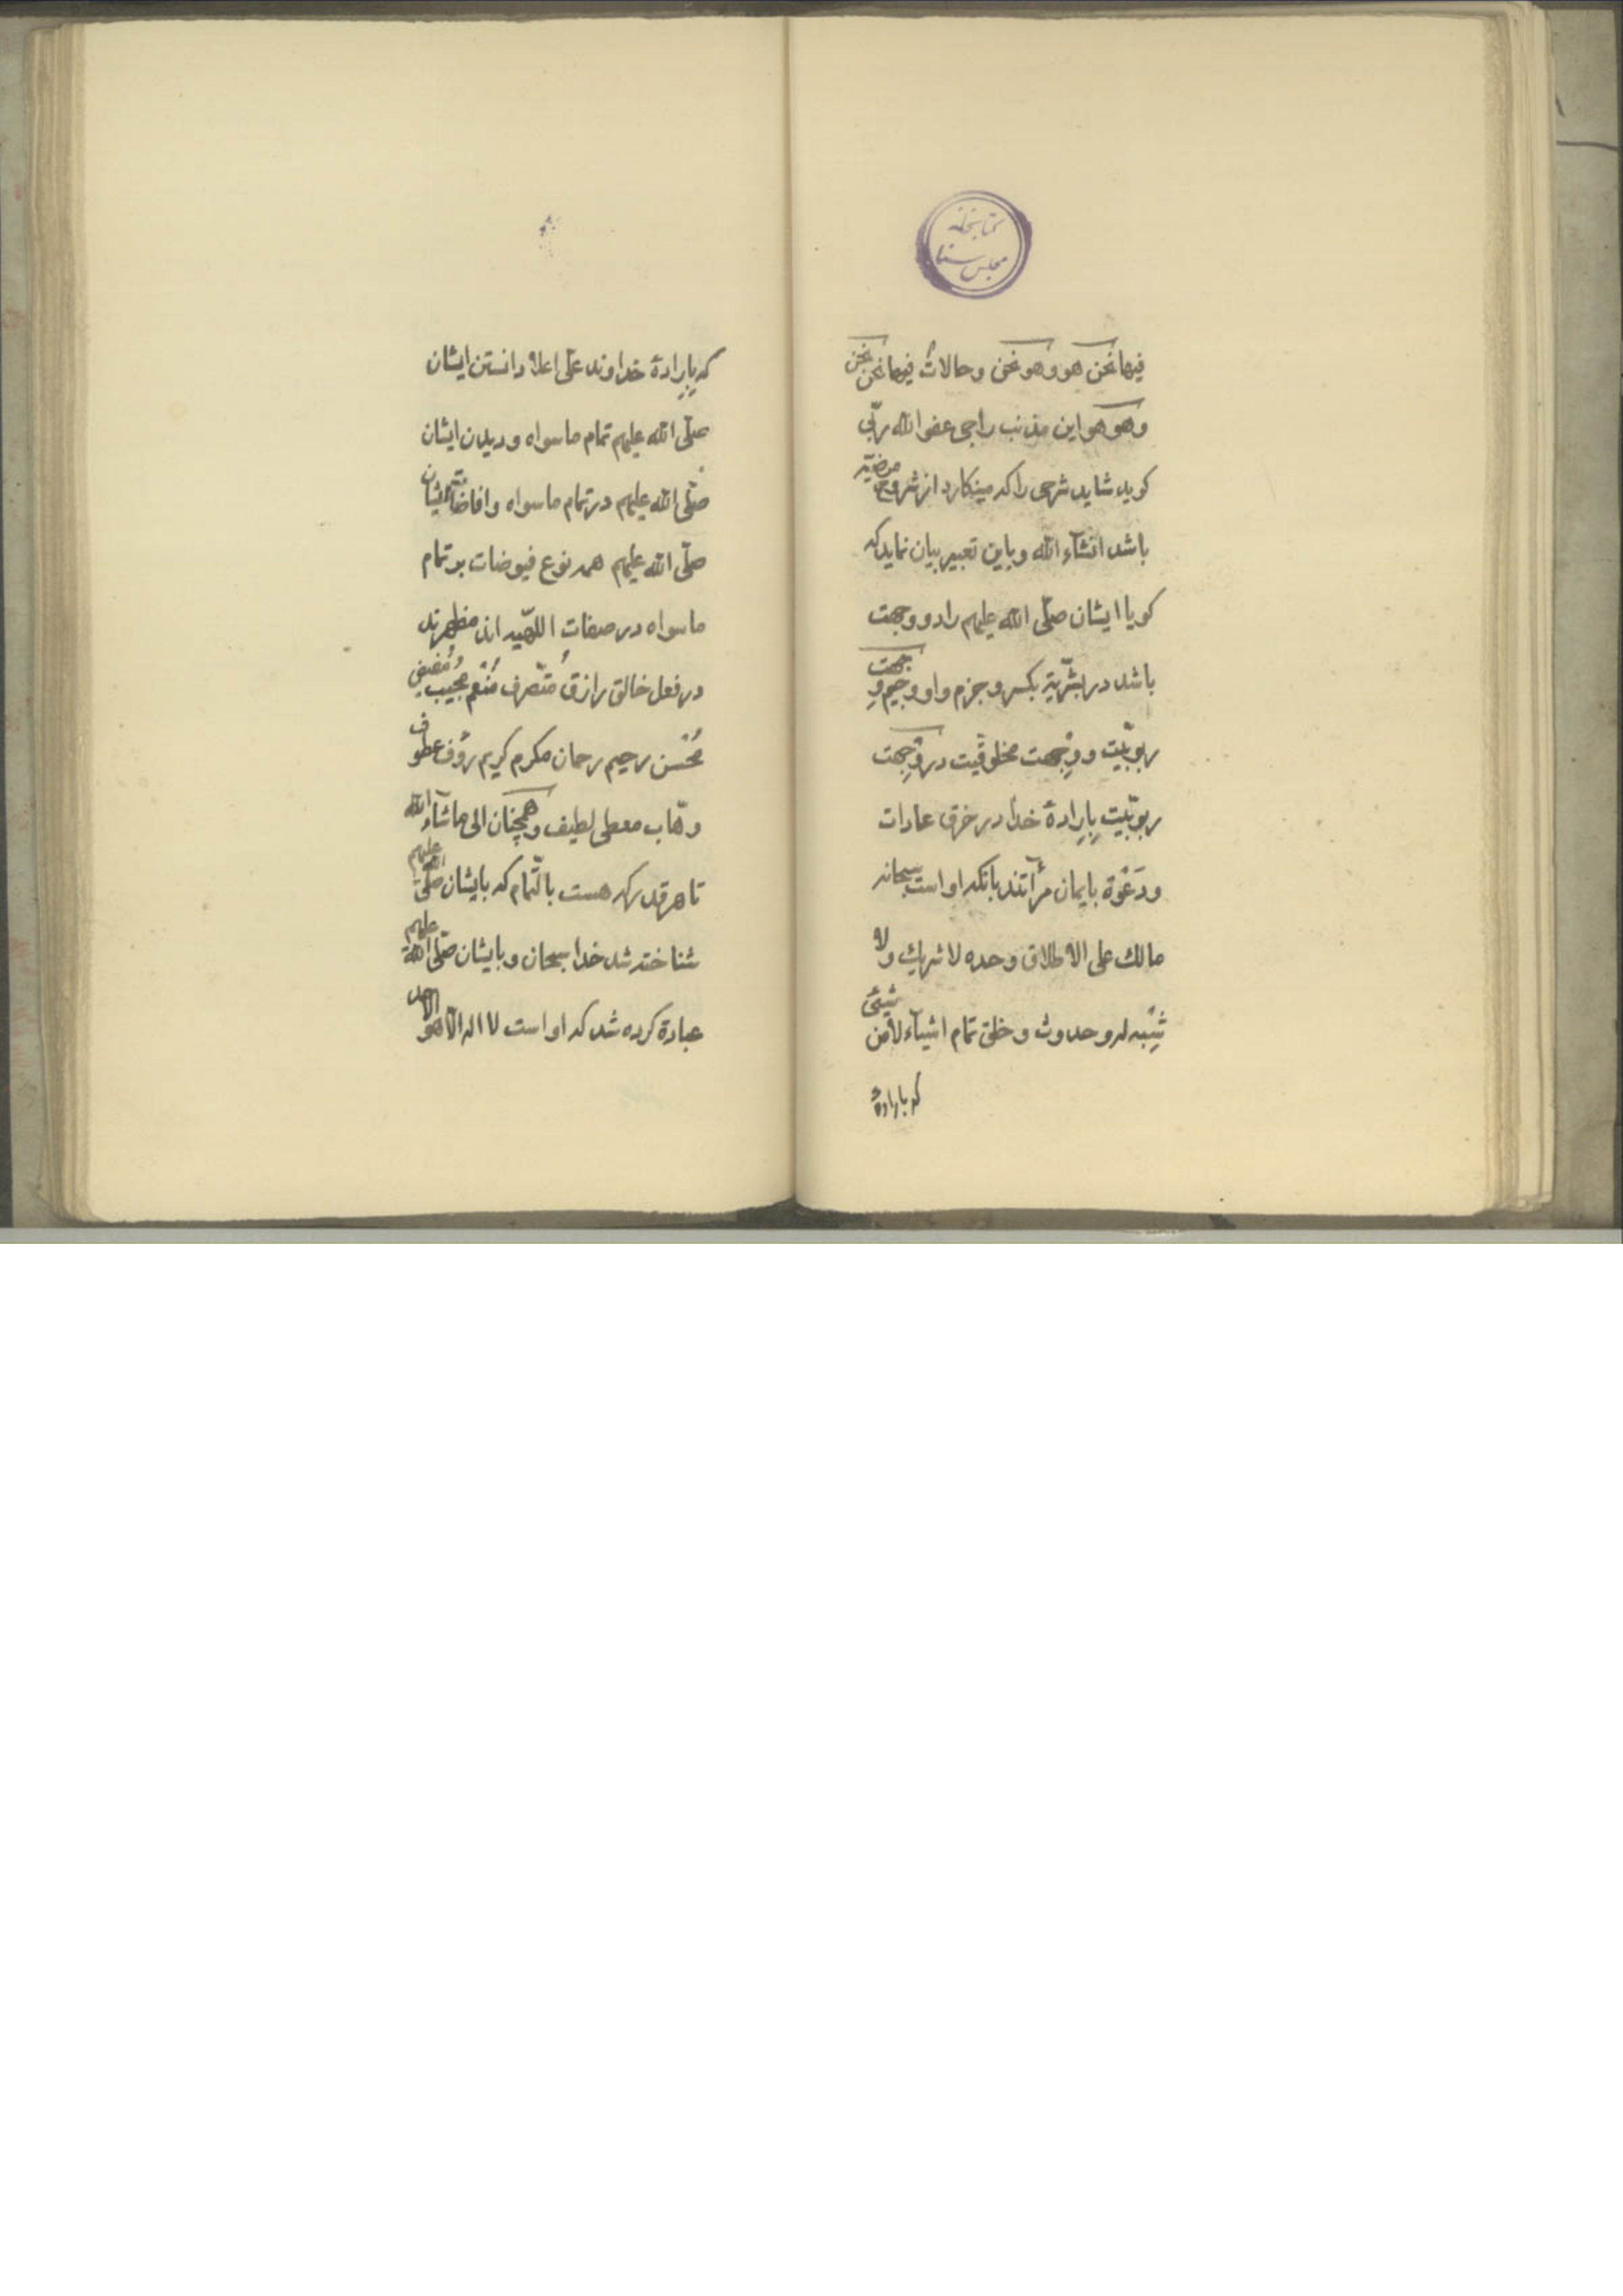 کتابخانه
مجلس سنا
فیها نحن هو و هو نحن و حالاتُ فیها نحن نحن
وهو هو این مذنب راجی عفو الله ربّی
کوید شاید شرحی را که مینکارد از شروح مرضیّه
باشد انشآء الله و باین تعبیر بیان نماید که
کویا ایشان صلّی الله علیهم را دو وجهت
باشد در بشریّة بکسر و جزم واو و جیم وِجهت
ربوبّیت و وِجهت مخلوقیت در وِجهت
ربوبّیت بِاِرادهٔ خدا در خرق عادات
ودَعْوة بایمان مرآتند بانکه او است سبحانه
مالك علی الاطلاق وحده لا شریك ولا
شبیه له و حدوث و خلق تمام اشیآء لا من شیئ
که باراده
که بِاِرادهٔ خداوند علّی اعلا دانستن ایشان
صلّی الله علیهم تمام ماسواه و دیدن ایشان
صلّی الله علیهم در تمام ماسواه و افاضهٔ ایشان
صلّی الله علیهم همه نوع فیوضات بر تمام
ماسواه در صفات اللهیه اند مظهرند
در فعل خالق رازق مُتّصرف مُنْعِم مجیب و مُفیض
مُحْسن رحیم رحمان مکرم کریم رؤف عطوف
وهّاب معطی لطیف و همچنان الی ماشآء الله
تا هر قدر که هست بالتّمام که بایشان صلّی الله علیهم
شناخته شد خدا سبحان و بایشان صلّی الله علیهم
عبادة کرده شد که او است لا اله الّا هو الاحد